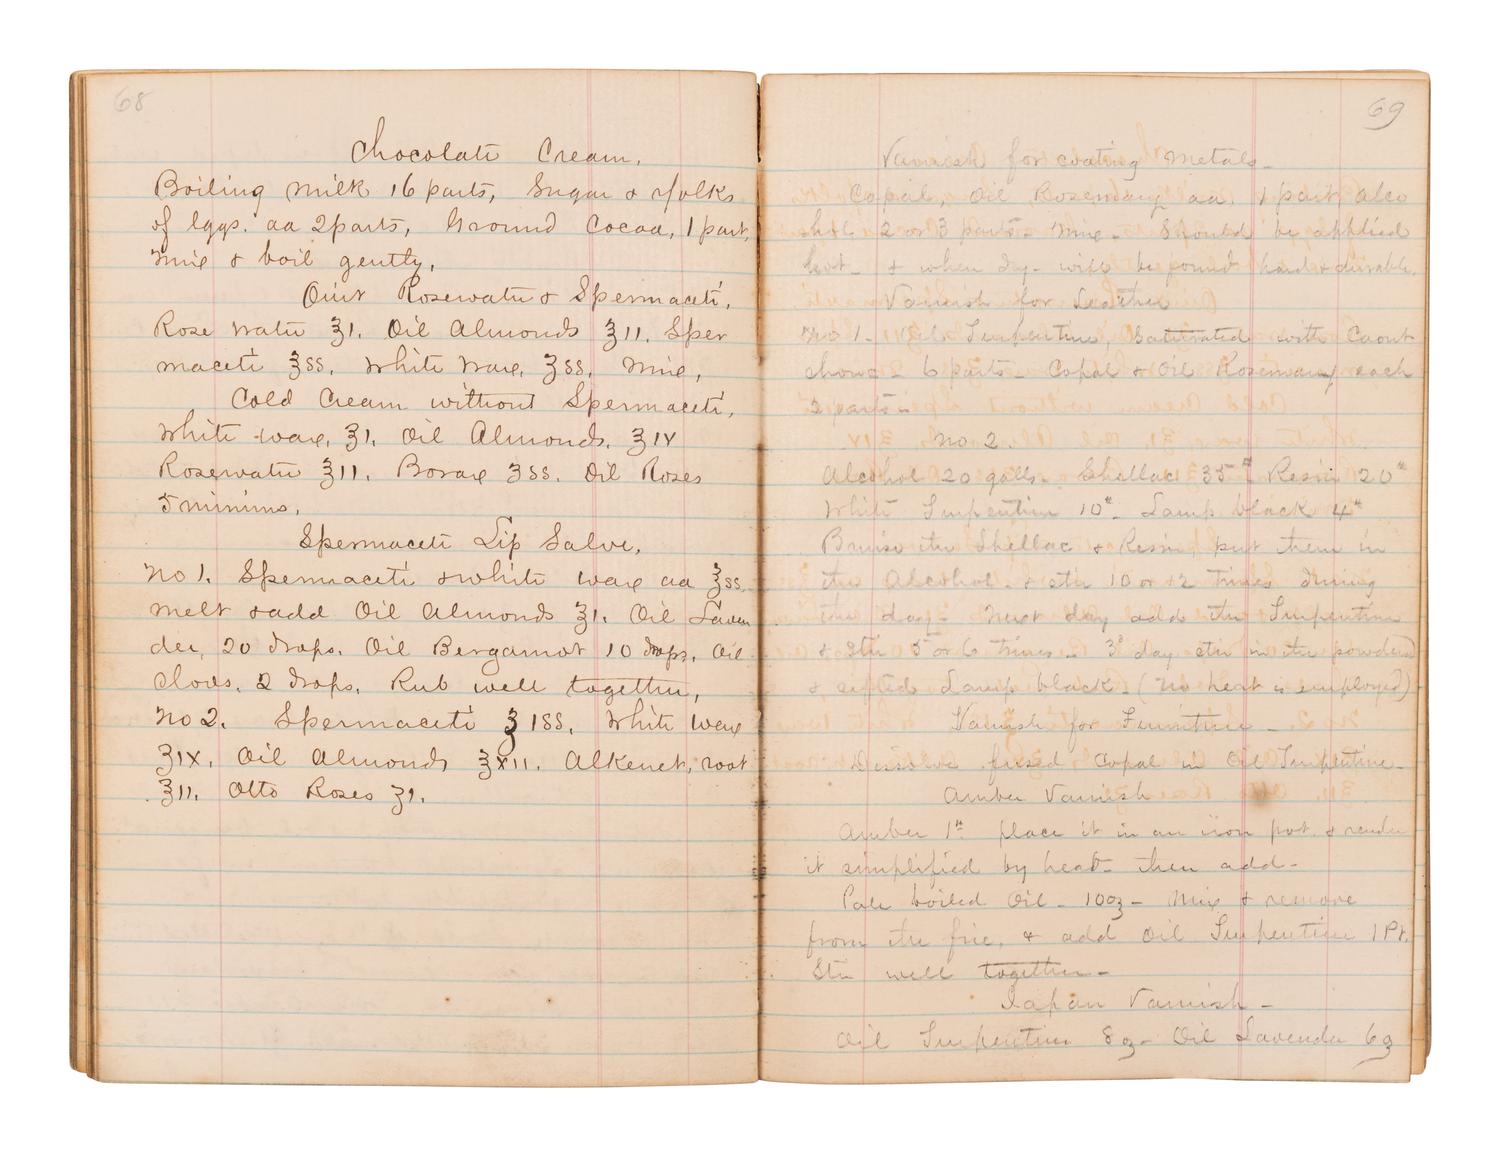 68
Chocolate Cream.
Boiling Milk 16 parts, Sugar & Yolks
of Eggs. aa 2 parts, Ground Cocoa, 1 part,
Mix & boil gently.
Oint Rosewater & Spermaceti.
Rose Water ℥1. Oil Almonds ℥11. Sper
maceti ℥ss. White Wax, ℥ss. Mix,
Cold Cream without Spermaceti,
White wax, ℥1. Oil Almonds. ℥1V
Rosewater ℥11. Borax ʒss. Oil Roses
5 minims.
Spermaceti Lip Salve.
No 1. Spermaceti & white wax aa ℥ss.
melt & add Oil Almonds ℥1. Oil Laven
der, 20 drops. Oil Bergamot 10 drops, Oil
cloves. 2 drops. Rub well together,
No 2. Spermaceti ℥ 1ss. White wax
℥1X. Oil Almonds ℥X11. Alkenet, root
℥11. Otto Roses ʒ1.
69
Varnish for coating Metals_
Copal, Oil Rosemary aa. 1 part Alco
hol 2 or 3 parts_ Mix_ Should be applied
hot_ & when dry_ will be found hard & durable.
Varnish for Leather
No 1_ Oil Turpentine, Saturated with Caout
chouc_ 6 parts_ Copal & Oil Rosemary each
2 parts_
No 2.
Alcohol 20 galls_ Shellac 35# Resin 20#
White Turpentine 10#_ Lamp black 4#
Bruise the Shellac & Resin, put them in
the Alcohol_ & stir 10 or 12 times during
the day_ Next day add the Turpentine
& Stir 5 or 6 times_ 3d day stir in the powdered
& sifted Lamp black_ (No heat is employed)
Varnish for Furniture_
Dissolve fused Copal in Oil Turpentine_
Amber Varnish
Amber 1# place it in an iron pot. & render
it simplified by heat_ then add_
Pale boiled Oil_ 10℥_ Mix & remove
from the fire, & add Oil Turpentine 1 Pt.
Stir well together_
Japan Varnish_
Oil Turpentine 8℥_ Oil Lavender 6℥